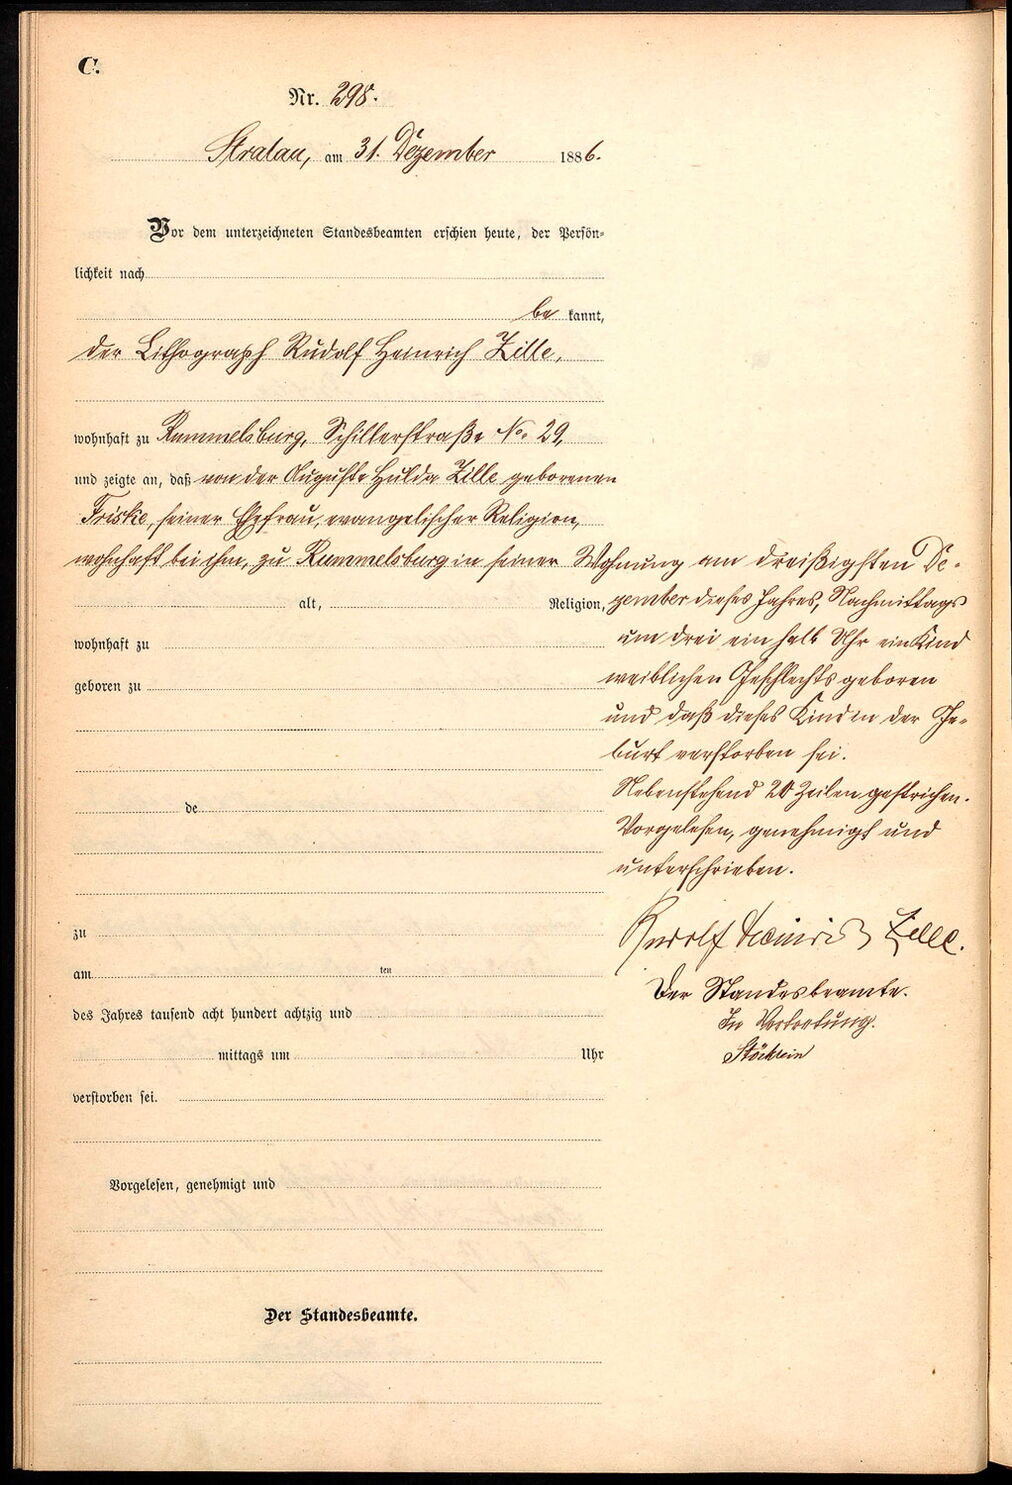 C.
Nr. 298.
Stralau, am 31. Dezember 1886.
Vor dem unterzeichneten Standesbeamten erschien heute, der Persön-
lichkeit nach
be kannt,
der Lithograph Rudolf Heinrich Zille,
wohnhaft zu Rummelsburg, Schillerstraße No. 29,
und zeigte an, daß von der Auguste Hulda Zille geborenen
Friske, seiner Ehefrau, evangelischer Religion,
wohnhaft bei ihm, zu Rummelsburg in seiner Wohnung am dreißigsten De-
alt, Religion, zember dieses Jahres, Nachmittags
wohnhaft zu um drei ein halb Uhr ein Kind
geboren zu weiblichen Geschlechts geboren
und daß dieses Kind in der Ge-
burt verstorben sei.
Nebenstehend 20 Zeilen gestrichen.
de
Vorgelesen, genehmigt und
unterschrieben.
zu Rudolf Heinrich Zille.
am ten
Der Standesbeamte.
des Jahres tausend acht hundert achtzig und In Vertretung.
mittags um Uhr
verstorben sei.
Vorgelesen, genehmigt und
Der Standesbeamte.